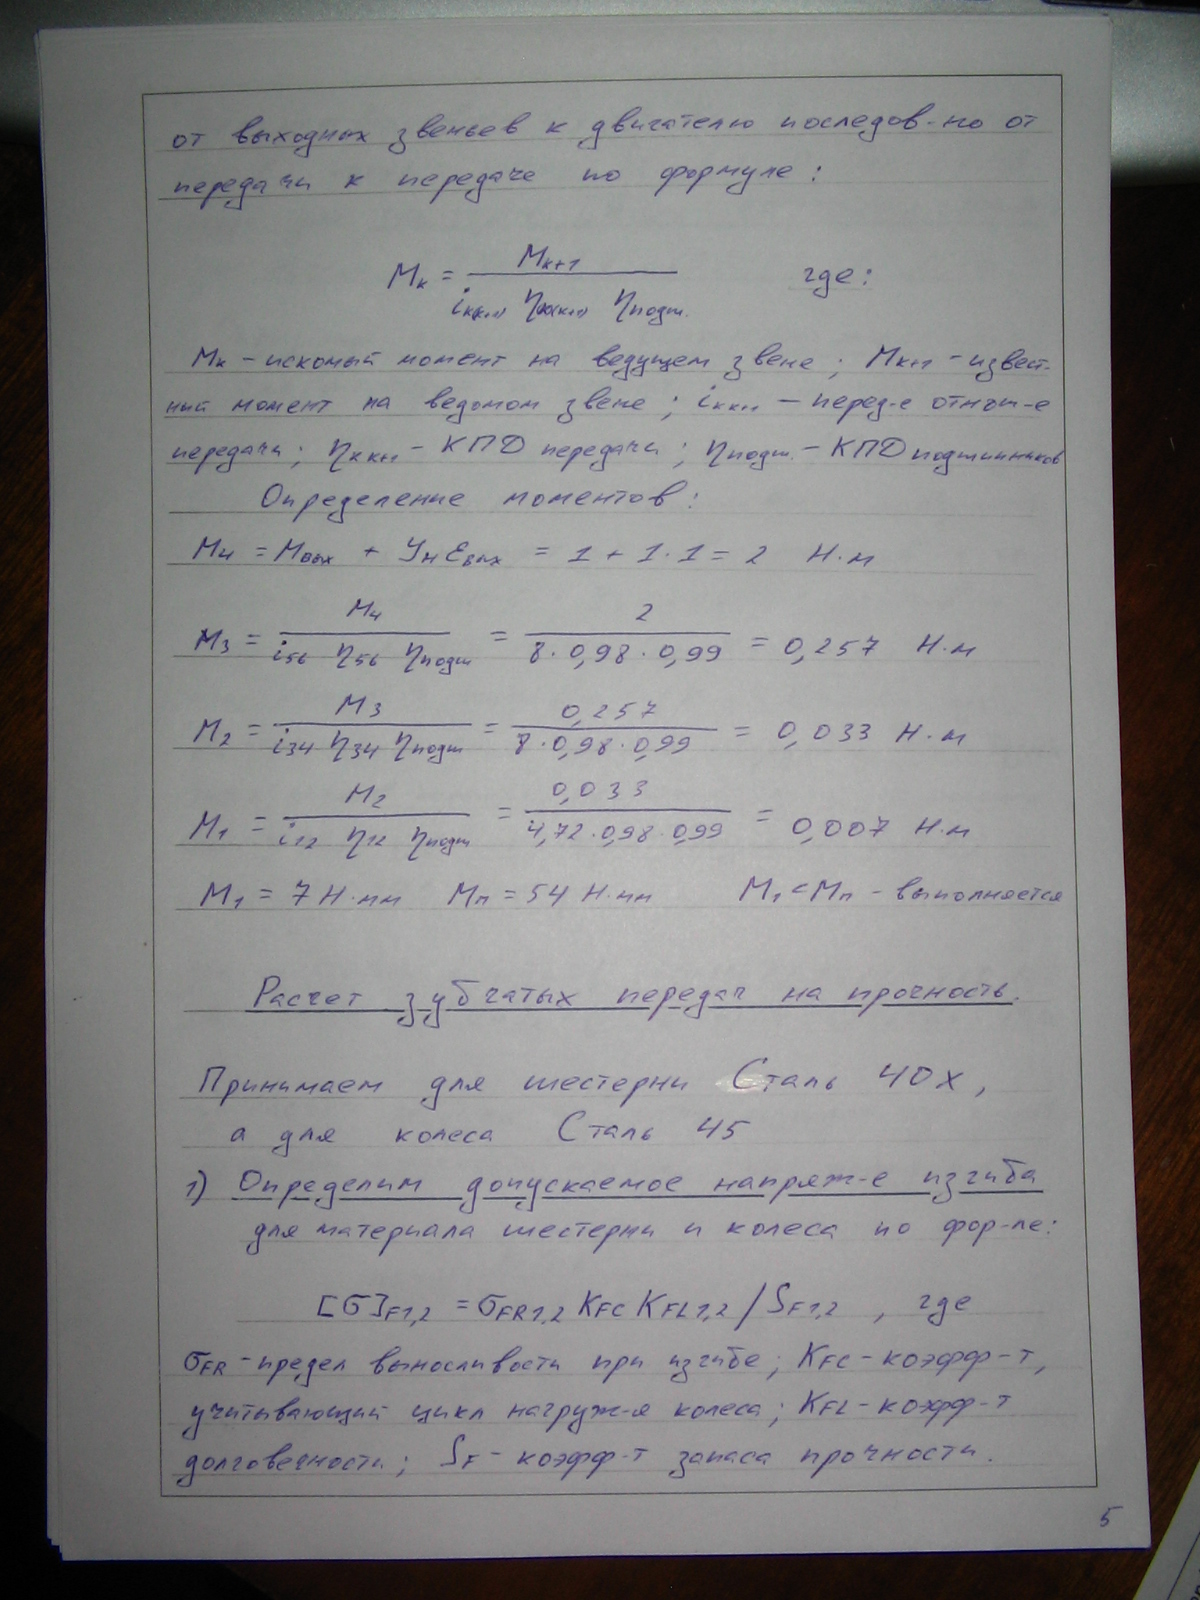 от выходных звеньев к двигателю последов-но от
передачи к передаче по формуле:
Mк = Mк+1 / iк(к+1) ηк(к+1) ηподш. где:
Mк - искомый момент на ведущем звене; Mк+1 - извест-
ный момент на ведомом звене; iкк+1 - перед-е отнош-е
передачи; ηкк+1 - КПД передачи; ηподш. - КПД подшипников
Определение моментов:
M4 = Mвых + Jн εвых = 1 + 1·1 = 2 Н·м
M3 = M4 / i56 η56 ηподш = 2 / 8·0,98·0,99 = 0,257 Н·м
M2 = M3 / i34 η34 ηподш = 0,257 / 8·0,98·0,99 = 0,033 Н·м
M1 = M2 / i12 η12 ηподш = 0,033 / 4,72·0,98·0,99 = 0,007 Н·м
M1 = 7 Н·мм Mп = 54 Н·мм M1 < Mп - выполняется
Расчет зубчатых передач на прочность.
Принимаем для шестерни Сталь 40х,
а для колеса Сталь 45
1) Определим допускаемое напряж-е изгиба
для материала шестерни и колеса по фор-ле:
[σ]F1,2 = σFR1,2 KFC KFL1,2 / SF1,2 , где
σFR - предел выносливости при изгибе; KFC - коэфф-т,
учитывающий цикл нагруж-я колеса; KFL - коэфф-т
долговечности; SF - коэфф-т запаса прочности.
5